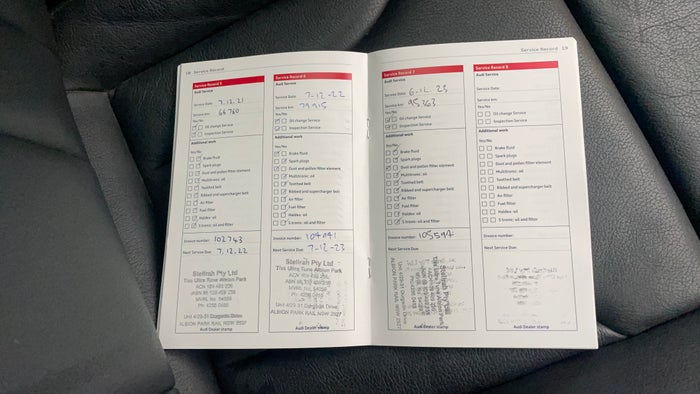 18 Service Record
Service Record 5
Audi Service
Service Date 7.12.21
Service km: 66760
Yes/No
Oil change Service
Inspection Service
Additional work
Yes/No
Brake fluid
Spark plugs
Dust and pollen filter element
Multitronic: oil
Toothed belt
Ribbed and supercharger belt
Air filter
Fuel filter
Haldex: oil
S tronic: oil and filter
Invoice number: 102743
Next Service Due: 7.12.22
Stellrah Pty Ltd
T/as Ultra Tune Albion Park
Unit 4/29-31 Durgadin Drive
ALBION PARK RAIL NSW 2527
Audi Dealer stamp
Service Record 6
Audi Service
Service Date: 7-12-22
Service km: 79915
Yes/No
Oil change Service
Inspection Service
Additional work
Yes/No
Brake fluid
Spark plugs
Dust and pollen filter element
Multitronic: oil
Toothed belt
Ribbed and supercharger belt
Air filter
Fuel filter
Haldex: oil
S tronic: oil and filter
Invoice number: 104041
Next Service Due: 7-12-23
Stellrah Pty Ltd
T/as Ultra Tune Albion Park
ALBION PARK RAIL NSW 2527
Audi Dealer stamp
Service Record 19
Service Record 7
Audi Service
Service Date: 6-12.23
Service km: 95263
Yes/No
Oil change Service
Inspection Service
Additional work
Yes/No
Brake fluid
Spark plugs
Dust and pollen filter element
Multitronic: oil
Toothed belt
Ribbed and supercharger belt
Air filter
Fuel filter
Haldex: oil
S tronic: oil and filter
Invoice number: 105594
Next Service Due:
Audi Dealer stamp
Service Record 8
Audi Service
Service Date:
Service km:
Yes/No
Oil change Service
Inspection Service
Additional work
Yes/No
Brake fluid
Spark plugs
Dust and pollen filter element
Multitronic: oil
Toothed belt
Ribbed and supercharger belt
Air filter
Fuel filter
Haldex: oil
S tronic: oil and filter
Invoice number:
Next Service Due:
Audi Dealer stamp